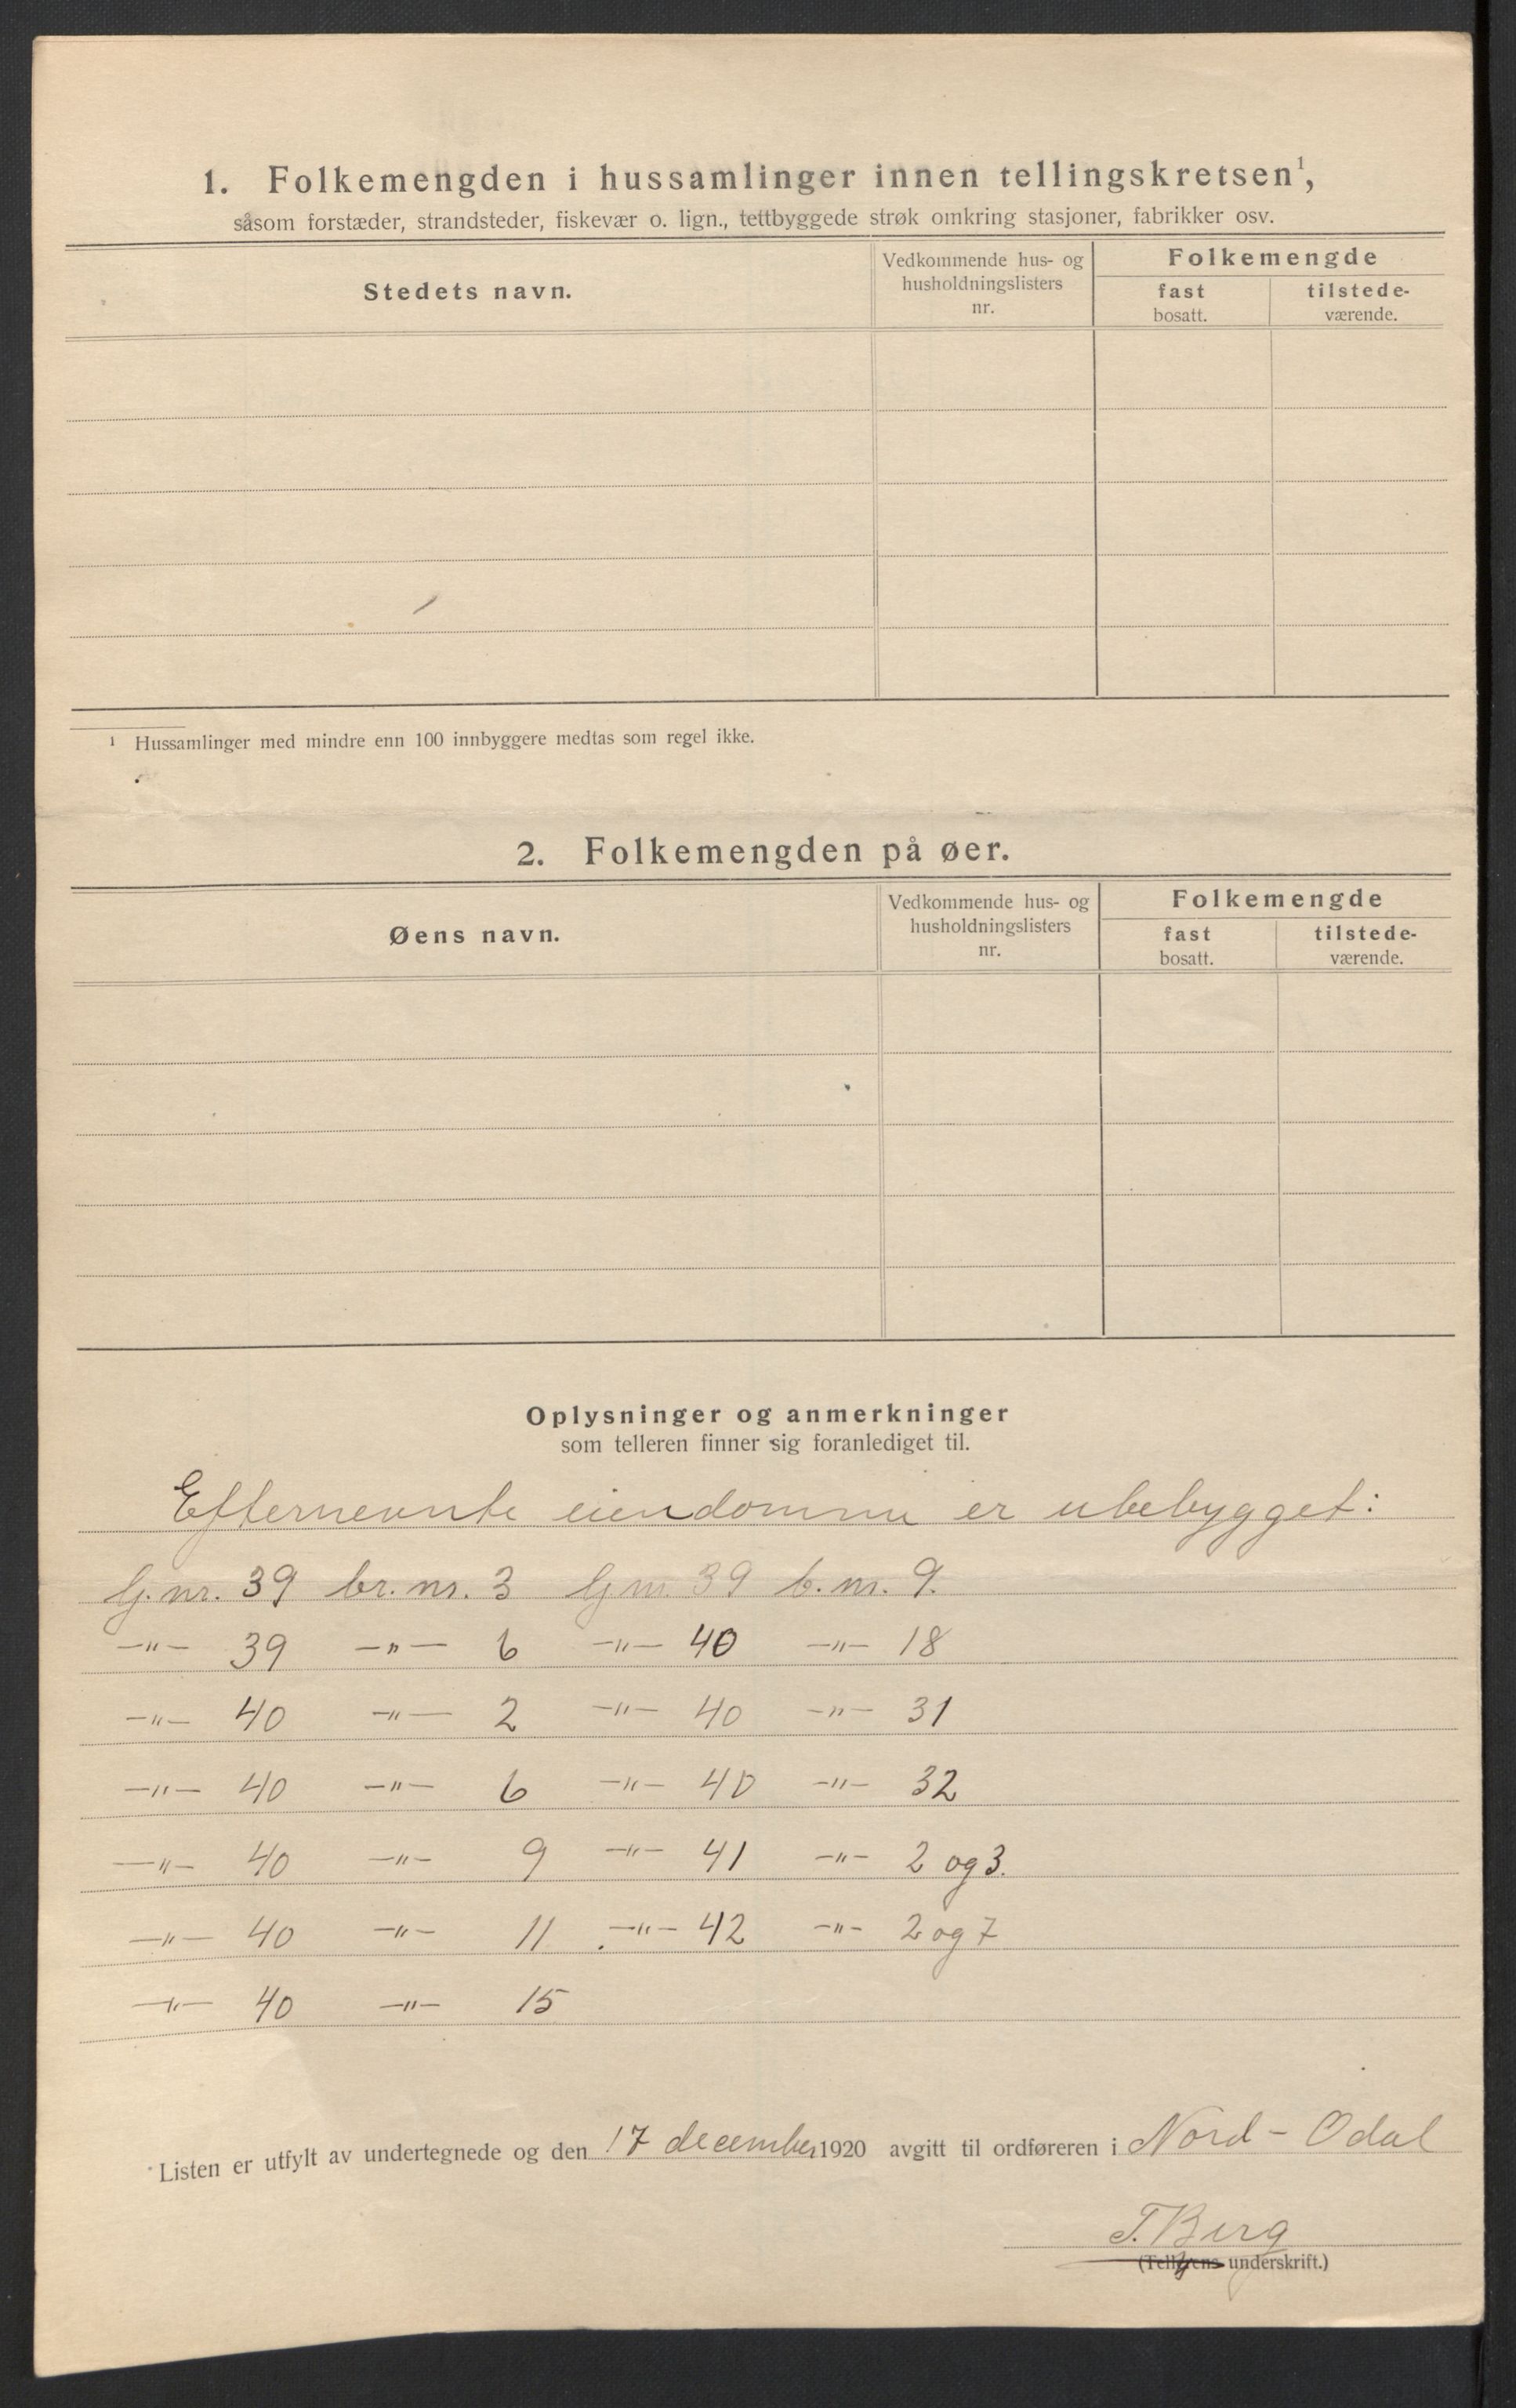 1. Folkemengden i hussamlinger innen tellingskretsen¹,
såsom forstæder, strandsteder, fiskevær o. lign., tettbyggede strøk omkring stasjoner, fabrikker osv.
Stedets navn.
Vedkommende hus- og
husholdningslisters
nr.
Folkemengde
fast
bosatt.
tilstede-
værende.
¹ Hussamlinger med mindre enn 100 innbyggere medtas som regel ikke.
2. Folkemengden på øer.
Øens navn.
Vedkommende hus- og
husholdningslisters
nr.
Folkemengde
fast
bosatt.
tilstede-
værende.
Oplysninger og anmerkninger
som telleren finner sig foranlediget til.
Efternevnte eiendomme er ubebygget:
G. nr. 39 br. nr. 3 G nr. 39 b. nr. 9.
—"— 39 —"— 6 —"— 40 —"— 18
—"— 40 —"— 2 —"— 40 —"— 31
—"— 40 —"— 6 —"— 40 —"— 32
—"— 40 —"— 9 —"— 41 —"— 2 og 3.
—"— 40 —"— 11 —"— 42 —"— 2 og 7
—"— 40 —"— 15
Listen er utfylt av undertegnede og den 17 december 1920 avgitt til ordføreren i Nord-Odal
T. Berg
(Tellerens underskrift.)